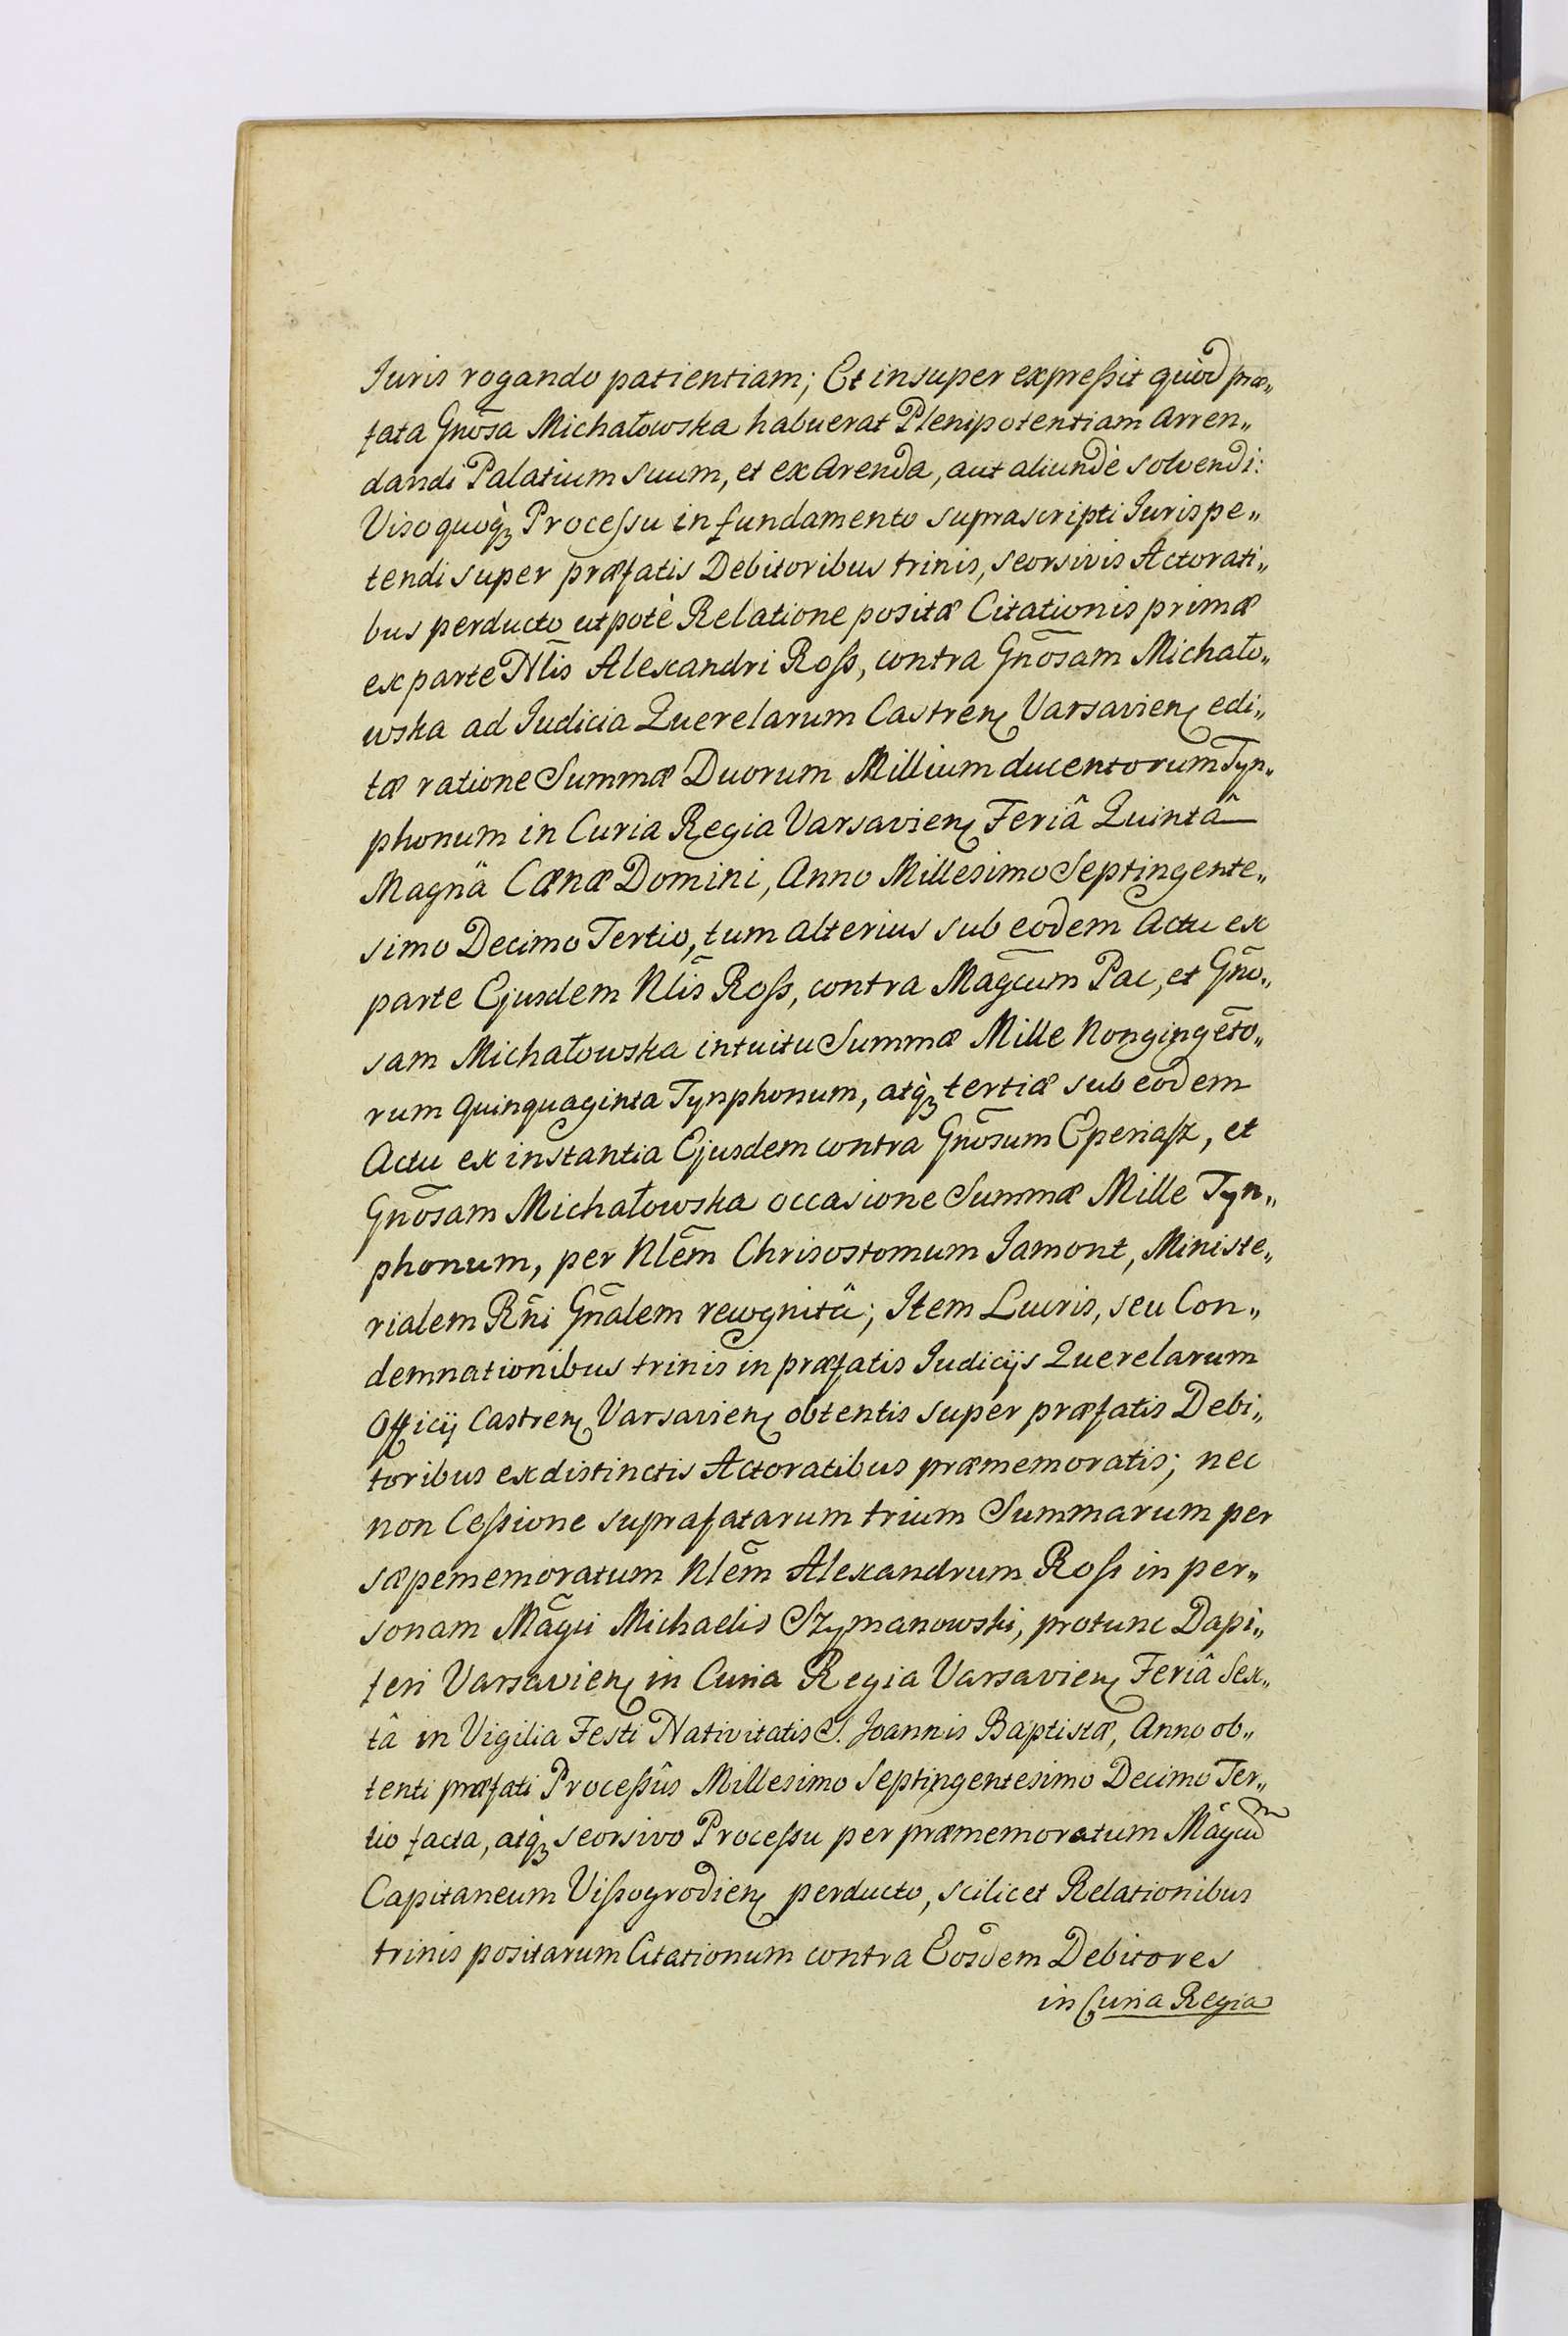 Juris rogando patientiam; Et insuper expreßit quòd præ„
fata Gnōsa Michałowska habuerat Plenipotentiam Arren„
dandi Palatium suum, et ex Arenda, aut aliundè solvendi:
Viso quoq̀ꝫ Proceſsu in fundamento suprascripti Juris pe„
tendi super præfatis Debitoribus trinis, seorsivis Actorati„
bus perducto utpotè Relatione positæ Citationis primæ
ex parte Nlis̄ Alexandri Roſs, contra Gnōsam Michało„
wska ad Judicia Querelarum Castren̨ Varsavien̨ edi„
tæ ratione Summæ Duorum Millium ducentorum Tyn„
phonum in Curia Regia Varsavien̨ Feriâ Quintâ
Magnâ Cænæ Domini, Anno Millesimo Septingente„
simo Decimo Tertio, tum alterius sub eodem Actu ex
parte Ejusdem Nlis̄ Roſs, contra Magc̄um Pac, et Gn̄o„
sam Michałowska intuitu Summæ Mille Nongingēto„
rum quinquaginta Tynphonum, atq̀ꝫ tertiæ sub eodem
Actu ex instantia Ejusdem contra Gnōsum Eperiaſz, et
Gnōsam Michałowska occasione Summæ Mille Tyn„
phonum, per Nlēm Chrisostomum Jamont, Ministe„
rialem Rn̄i Gn̄alem recognitâ; Item Lucris, seu Con„
demnationibus trinis in præfatis Judicijs Querelarum
Officij Castren̨ Varsavien̨ obtentis super præfatis Debi„
toribus ex distinctis Actoratibus præmemoratis; nec
non Ceſsione suprafatarum trium Summarum per
sæpememoratum Nlēm Alexandrum Roſs in per„
sonam Māgci Michaelis Szymanowski, protunc Dapi„
feri Varsavien̨ in Curia Regia Varsavien̨ Feriâ Sex„
tâ in Vigilia Festi Nativitatis S. Joannis Baptistæ, Anno ob„
tenti præfati Proceſsûs Millesimo Septingentesimo Decimo Ter„
tio facta, atq̀ꝫ seorsivo Proceſsu per præmemoratum Māgcūm
Capitaneum Viſsogrodien̨ perducto, scilicet Relationibus
trinis positarum Citationum contra Eosdem Debitores
in Curia Regia